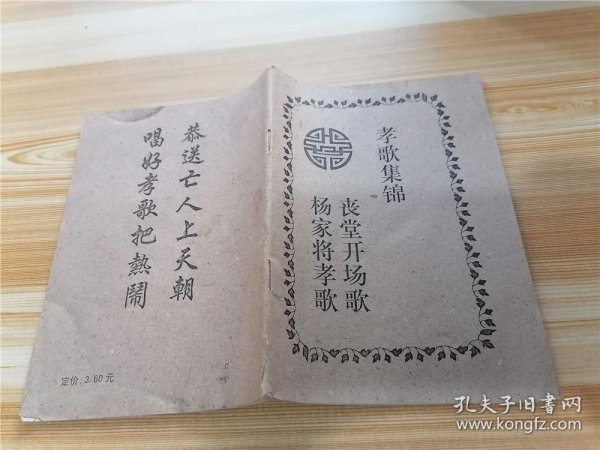 孝歌集锦
丧堂开场歌
杨家将孝歌
恭送亡人上天朝
唱好孝歌把熱鬧
定价:3.80元
孔夫子旧书网
www.kongfz.com